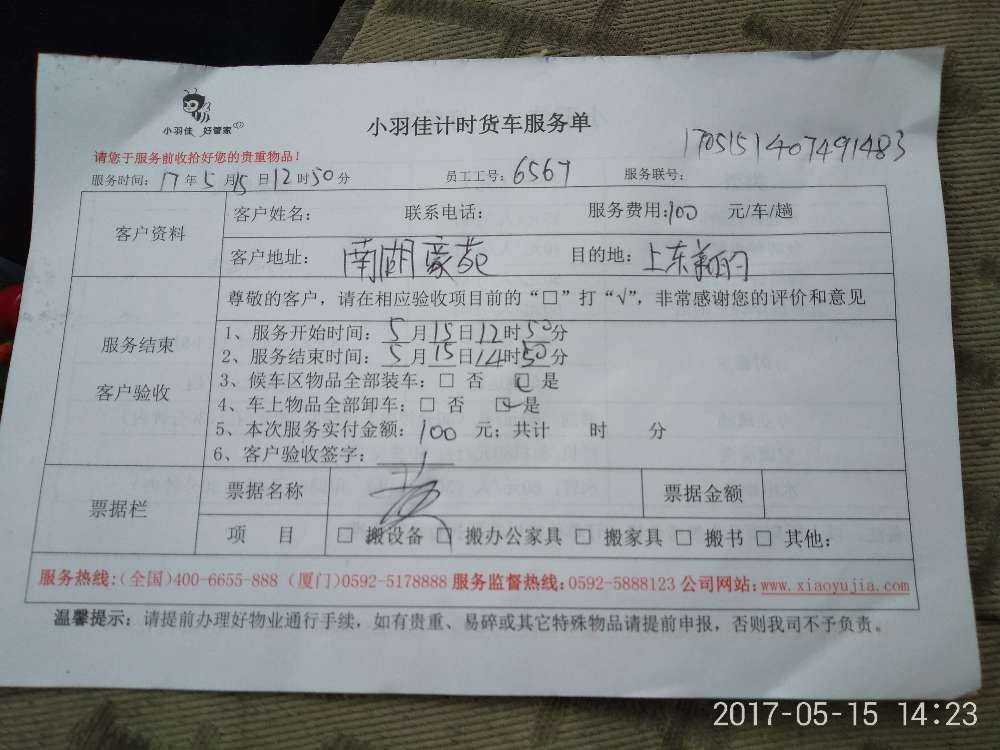 小羽佳 好管家
小羽佳计时货车服务单
1705151407491483
请您于服务前收拾好您的贵重物品!
服务时间: 17年5月15日12时50分 员工工号: 6567 服务联号:
客户资料
客户姓名: 联系电话: 服务费用:100 元/车/趟
客户地址: 南湖豪苑 目的地: 上东美的
尊敬的客户，请在相应验收项目前的“□”打“√”，非常感谢您的评价和意见
服务结束
客户验收
1、服务开始时间: 5月15日12时50分
2、服务结束时间: 5月15日14时50分
3、候车区物品全部装车: □ 否 ☑ 是
4、车上物品全部卸车: □ 否 ☑ 是
5、本次服务实付金额: 100 元; 共计 时 分
6、客户验收签字:
票据栏
票据名称 票据金额
项 目 □ 搬设备 □ 搬办公家具 □ 搬家具 □ 搬书 □ 其他:
服务热线:(全国)400-6655-888 (厦门)0592-5178888 服务监督热线:0592-5888123 公司网站:www.xiaoyujia.com
温馨提示: 请提前办理好物业通行手续，如有贵重、易碎或其它特殊物品请提前申报，否则我司不予负责。
2017-05-15 14:23